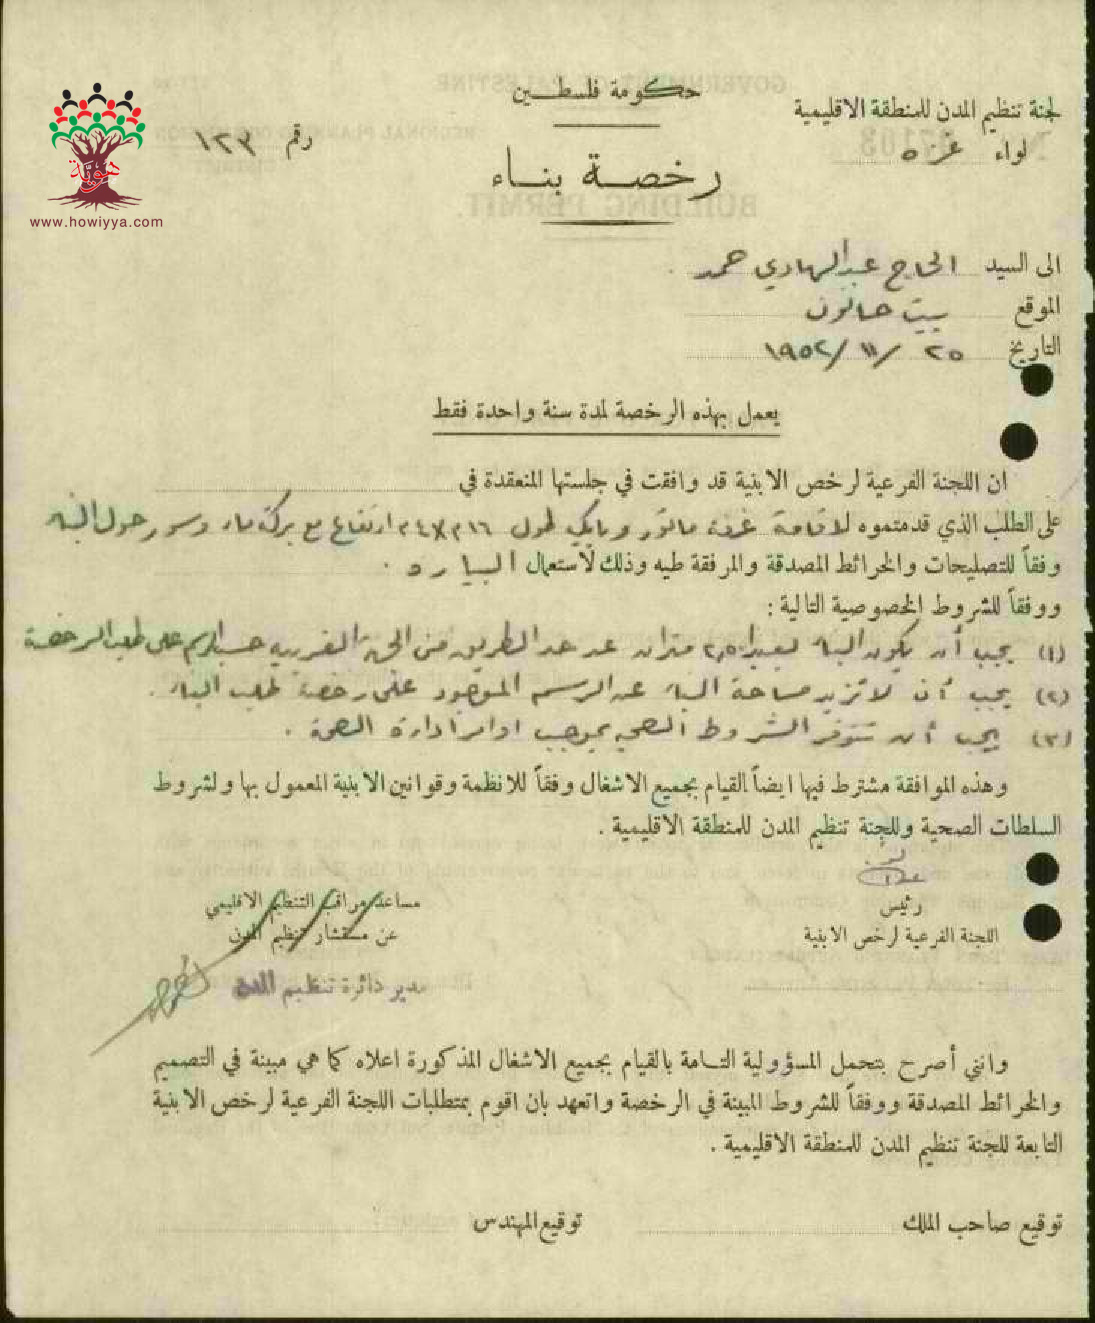 حكومة فلسطين
لجنة تنظيم المدن للمنطقة الاقليمية
لواء غزه
رقم ١٢٣
هوية
www.howiyya.com
رخصة بناء
الى السيد الحاج عبد الهادي حمد .
الموقع بيت حانون
التاريخ ٢٥ / ١١ / ١٩٥٢
يعمل بهذه الرخصة لمدة سنة واحدة فقط
ان اللجنة الفرعية لرخص الابنية قد وافقت في جلستها المنعقدة في
على الطلب الذي قدمتموه لاقامة غرفة ماتور وبايكي طول ارتفاع مع بركة ماء وسور حول البناء
وفقاً للتصليحات والخرائط المصدقة والمرفقة طيه وذلك لاستعمال البياره .
ووفقاً للشروط الخصوصية التالية :
(١) يجب أن يكون البناء بعيدا ٢،٥ متران عن حد الطريق من الجهة الغربيه حسب الرسم على طلب الرخصة
(٢) يجب أن لا تزيد مساحة البناء عن الرسم الموجود على رخصة طلب البناء .
(٣) يجب أن تتوفر الشروط الصحيه بموجب اوامر ادارة الصحة .
وهذه الموافقة مشترط فيها ايضاً القيام بجميع الاشغال وفقاً للانظمة وقوانين الابنية المعمول بها ولشروط
السلطات الصحية وللجنة تنظيم المدن للمنطقة الاقليمية .
رئيس
اللجنة الفرعية لرخص الابنية
مساعد مراقب التنظيم الاقليمي
عن مستشار تنظيم المدن
مدير دائرة تنظيم المدن
وانني أصرح بتحمل المسؤولية التامة بالقيام بجميع الاشغال المذكورة اعلاه كما هي مبينة في التصميم
والخرائط المصدقة ووفقاً للشروط المبينة في الرخصة واتعهد بان اقوم بمتطلبات اللجنة الفرعية لرخص الابنية
التابعة للجنة تنظيم المدن للمنطقة الاقليمية .
توقيع صاحب الملك
توقيع المهندس